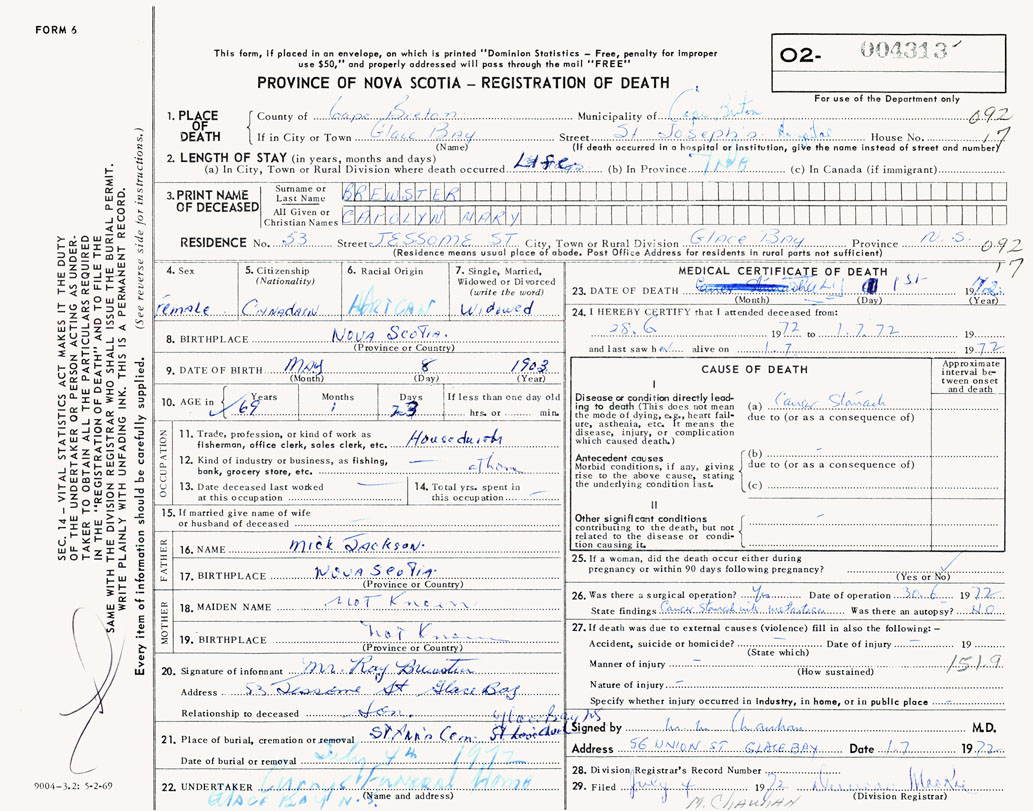 FORM 6
This form, if placed in an envelope, on which is printed "Dominion Statistics – Free, penalty for improper
use $50," and properly addressed will pass through the mail "FREE"
PROVINCE OF NOVA SCOTIA – REGISTRATION OF DEATH
O2- 004313
For use of the Department only
1. PLACE OF DEATH
County of Cape Breton Municipality of Cape Breton 092
If in City or Town Glace Bay Street St Joseph's Hospital House No. 17
(Name) (If death occurred in a hospital or institution, give the name instead of street and number)
2. LENGTH OF STAY (in years, months and days)
(a) In City, Town or Rural Division where death occurred Life (b) In Province (c) In Canada (if immigrant)
3. PRINT NAME OF DECEASED
Surname or Last Name BREWSTER
All Given or Christian Names CAROLYN MARY
RESIDENCE No. 53 Street JESSOME ST City, Town or Rural Division Glace Bay Province N.S. 092
(Residence means usual place of abode. Post Office Address for residents in rural parts not sufficient) 17
4. Sex
Female
5. Citizenship (Nationality)
6. Racial Origin
7. Single, Married, Widowed or Divorced (write the word)
Widowed
8. BIRTHPLACE Nova Scotia.
(Province or Country)
9. DATE OF BIRTH May 8 1903
(Month) (Day) (Year)
10. AGE in Years 69 Months 1 Days 23 If less than one day old hrs. or min.
OCCUPATION
11. Trade, profession, or kind of work as
fisherman, office clerk, sales clerk, etc.
12. Kind of industry or business, as fishing,
bank, grocery store, etc. — at home
13. Date deceased last worked
at this occupation —
14. Total yrs. spent in
this occupation —
15. If married give name of wife
or husband of deceased —
FATHER
16. NAME Mick Jackson.
17. BIRTHPLACE Nova Scotia.
(Province or Country)
MOTHER
18. MAIDEN NAME not Known
19. BIRTHPLACE not Known
(Province or Country)
20. Signature of informant Mr. Ray Brewster
Address 53 Jessome St Glace Bay
Relationship to deceased Son. Glace Bay NS
21. Place of burial, cremation or removal St Ann's Cem.
Date of burial or removal July 4th 1972
22. UNDERTAKER Curry's Funeral Home
(Name and address) Glace Bay N.S.
MEDICAL CERTIFICATE OF DEATH
23. DATE OF DEATH July 1st 1972
(Month) (Day) (Year)
24. I HEREBY CERTIFY that I attended deceased from:
28.6 1972 to 1.7.72 19
and last saw her alive on 1.7 1972
CAUSE OF DEATH
Approximate interval between onset and death
I
Disease or condition directly leading to death (This does not mean the mode of dying, e.g., heart failure, asthenia, etc. It means the disease, injury, or complication which caused death.)
(a) Cancer Stomach
due to (or as a consequence of)
Antecedent causes
Morbid conditions, if any, giving rise to the above cause, stating the underlying condition last.
(b) -
due to (or as a consequence of)
(c)
II
Other significant conditions
contributing to the death, but not related to the disease or condition causing it. -
25. If a woman, did the death occur either during
pregnancy or within 90 days following pregnancy?
(Yes or No)
26. Was there a surgical operation? Yes Date of operation 30.6 1972
State findings Cancer stomach with metastases Was there an autopsy? NO
27. If death was due to external causes (violence) fill in also the following: –
Accident, suicide or homicide? - Date of injury - 19
(State which)
Manner of injury - 1519
(How sustained)
Nature of injury -
Specify whether injury occurred in industry, in home, or in public place -
Signed by Chauhan M.D.
Address 56 UNION ST GLACE BAY Date 1.7 1972
28. Division Registrar's Record Number
29. Filed July 4 1972
(Division Registrar)
M. CHAUHAN
SEC. 14 – VITAL STATISTICS ACT MAKES IT THE DUTY
OF THE UNDERTAKER OR PERSON ACTING AS UNDER-
TAKER TO OBTAIN ALL THE PARTICULARS REQUIRED
IN THE "REGISTRATION OF DEATH" AND TO FILE THE
SAME WITH THE DIVISION REGISTRAR WHO SHALL ISSUE THE BURIAL PERMIT.
WRITE PLAINLY WITH UNFADING INK. THIS IS A PERMANENT RECORD.
Every item of information should be carefully supplied. (See reverse side for instructions.)
9004-3.2: 5-2-69